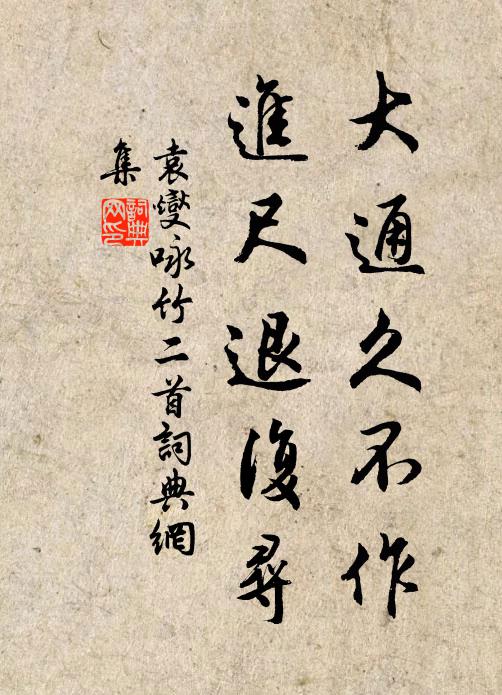 大通久不作
進尺退復尋
袁燮咏竹二首詞典網
集
詞典
网印